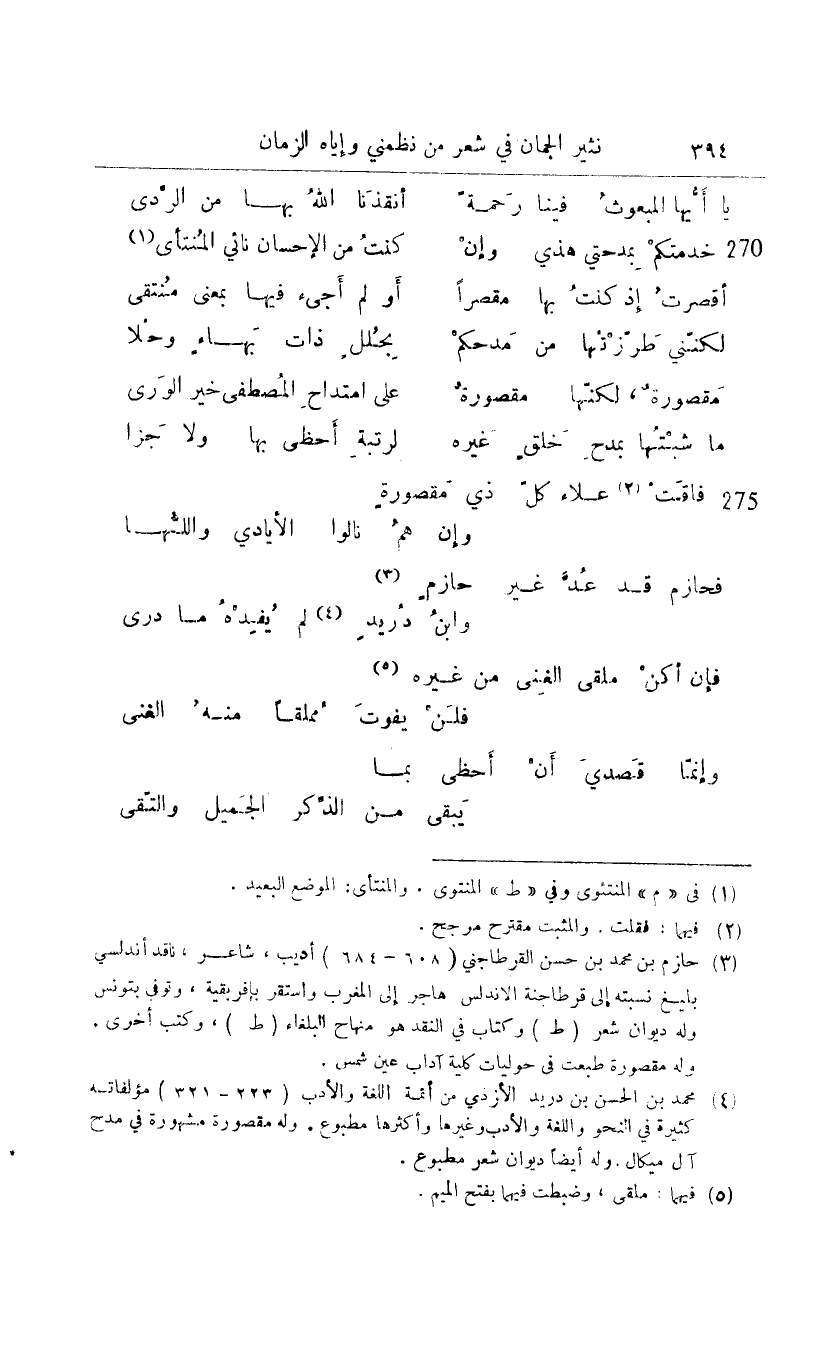 ٣٩٤ نثير الجمان في شعر من نظمني وإياه الزمان
يا أَيُّها المبعوثُ فينا رَحمةً أنقذَنا اللهُ بهـــا من الرَّدى
270 خدمتكمْ بِمدحتي هذي وإنْ كنتُ من الإحسان نائي المُنتأى(١)
أقصرتُ إذ كنتُ بها مقصراً أو لم أَجيء فيهـا بمعنى مُنتقى
لكنّني طَرّزْتُها من مَدحكمْ بِحُلَلٍ ذات بَهـــاءٍ وحُلا
مَقصورةٌ، لكنّها مقصورةٌ على امتداحِ المُصطفى خير الوَرى
ما شبْتُها بمدحِ خَلقٍ غَيره لرتبةٍ أَحظى بها ولا جَزا
275 فاقَتْ (٢) عـلاء كلّ ذي مَقصورةٍ
وإن همُ نالوا الأيادي واللُّهـــا
فحازم قـد عُدَّ غـير حازمٍ (٣)
وابنُ دُريدٍ (٤) لم يُفيدْهُ مـا درى
فإن أكنْ ملقى الغِنى من غـيره (٥)
فلَنْ يفوتَ مُملقـاً منـهُ الغنى
وإنمّا قَصديَ أنْ أَحظى بمـــا
يَبقى مـن الذّكر الجَميل والتّقى
(١) في « م » المنتئوى وفي « ط » المنتوى . والمنتأى: الموضع البعيد .
(٢) فيها : فقلت . والمثبت مقترح مرجح .
(٣) حازم بن محمد بن حسن القرطاجني ( ٦٠٨ – ٦٨٤ ) أديب ، شاعـر ، ناقد أندلسي
بليـغ نسبته إلى قرطاجنة الاندلس هاجر إلى المغرب واستقر بإفريقية ، وتوفى بتونس
وله ديوان شعر ( ط ) وكتاب في النقد هو منهاج البلغاء ( ط ) ، وكتب أخرى .
وله مقصورة طبعت في حوليات كلية آداب عين شمس .
(٤) محمد بن الحسن بن دريد الأزدي من أئمة اللغة والأدب ( ٢٢٣ – ٣٢١ ) مؤلفاتـه
كثيرة في النحو واللغة والأدب وغيرها وأكثرها مطبوع . وله مقصورة مشهورة في مدح
آل ميكال . وله أيضاً ديوان شعر مطبوع .
(٥) فيهما : ملقى ، وضبطت فيهما بفتح الميم .